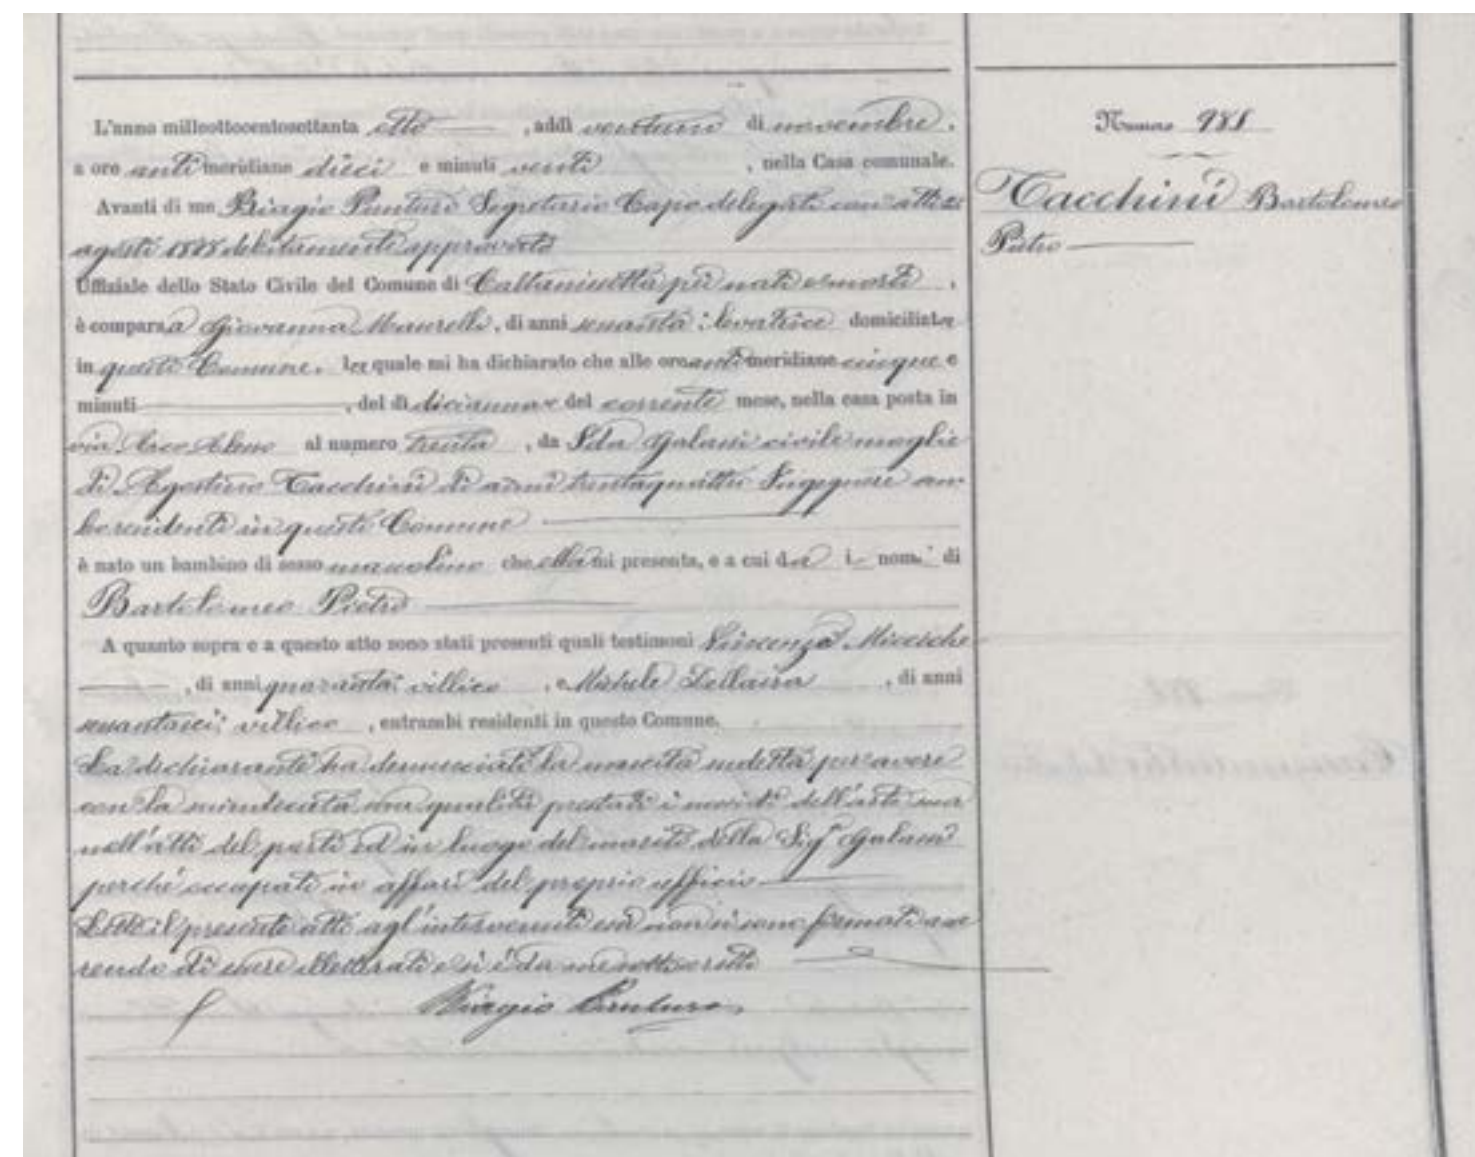 Numero 988
Tacchini Bartolomeo
Pietro
L'anno milleottocentosettanta otto, addì ventuno di novembre,
a ore anti meridiane dieci e minuti venti, nella Casa comunale.
Avanti di me Biagio Punturo Segretario Capo delegato con atto
agosto 1878 debitamente approvato
Uffiziale dello Stato Civile del Comune di Caltanissetta pei nati e morti,
è comparsa Giovanna Maurelli, di anni sessanta; levatrice domiciliata
in questo Comune, la quale mi ha dichiarato che alle ore anti meridiane cinque e
minuti, del dì diciannove del corrente mese, nella casa posta in
via Arco al numero trenta, da Ida Galani civile moglie
di Agostino Tacchini di anni trentaquattro Ingegnere am-
bo residenti in questo Comune
è nato un bambino di sesso mascolino che ella mi presenta, e a cui dà i nomi di
Bartolomeo Pietro
A quanto sopra e a questo atto sono stati presenti quali testimoni Vincenzo Miccichè
, di anni quaranta; villico, e Michele Dellaira, di anni
sessantasei; villico, entrambi residenti in questo Comune.
La dichiarante ha denunciato la nascita sudetta per avere
con la qualità prestato i dell'arte sua
nell'atto del parto ed in luogo del marito della Sig.a Galani
perché occupato in affari del proprio officio
Letto il presente atto agl'intervenuti essi non si sono firmati ave
rendo di essere illetterati e si è da me sottoscritto
Biagio Punturo